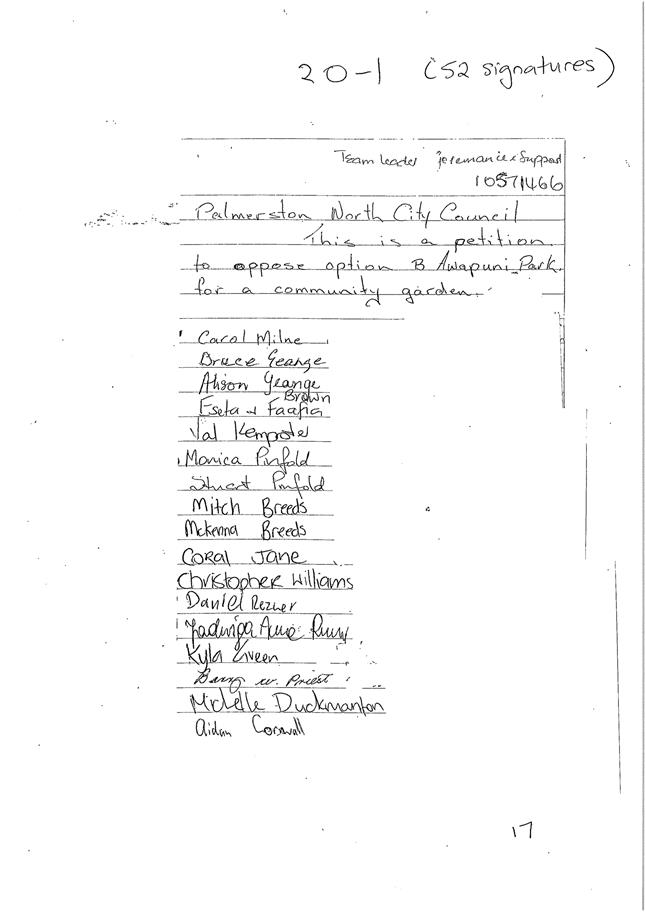 20-1 (52 signatures)
Team leader & Support
10571466
Palmerston North City Council
This is a petition
to oppose option B Awapuni Park
for a community garden.
Carol Milne
Bruce Geange
Alison Geange
Brown
Eseta & Faafia
Val
Monica Pinfold
Stuart Pinfold
Mitch Breeds
Mckenna Breeds
Coral Jane
Christopher Williams
Daniel
Kyla
w. Priest
Michelle Duckmanton
Aidan
17